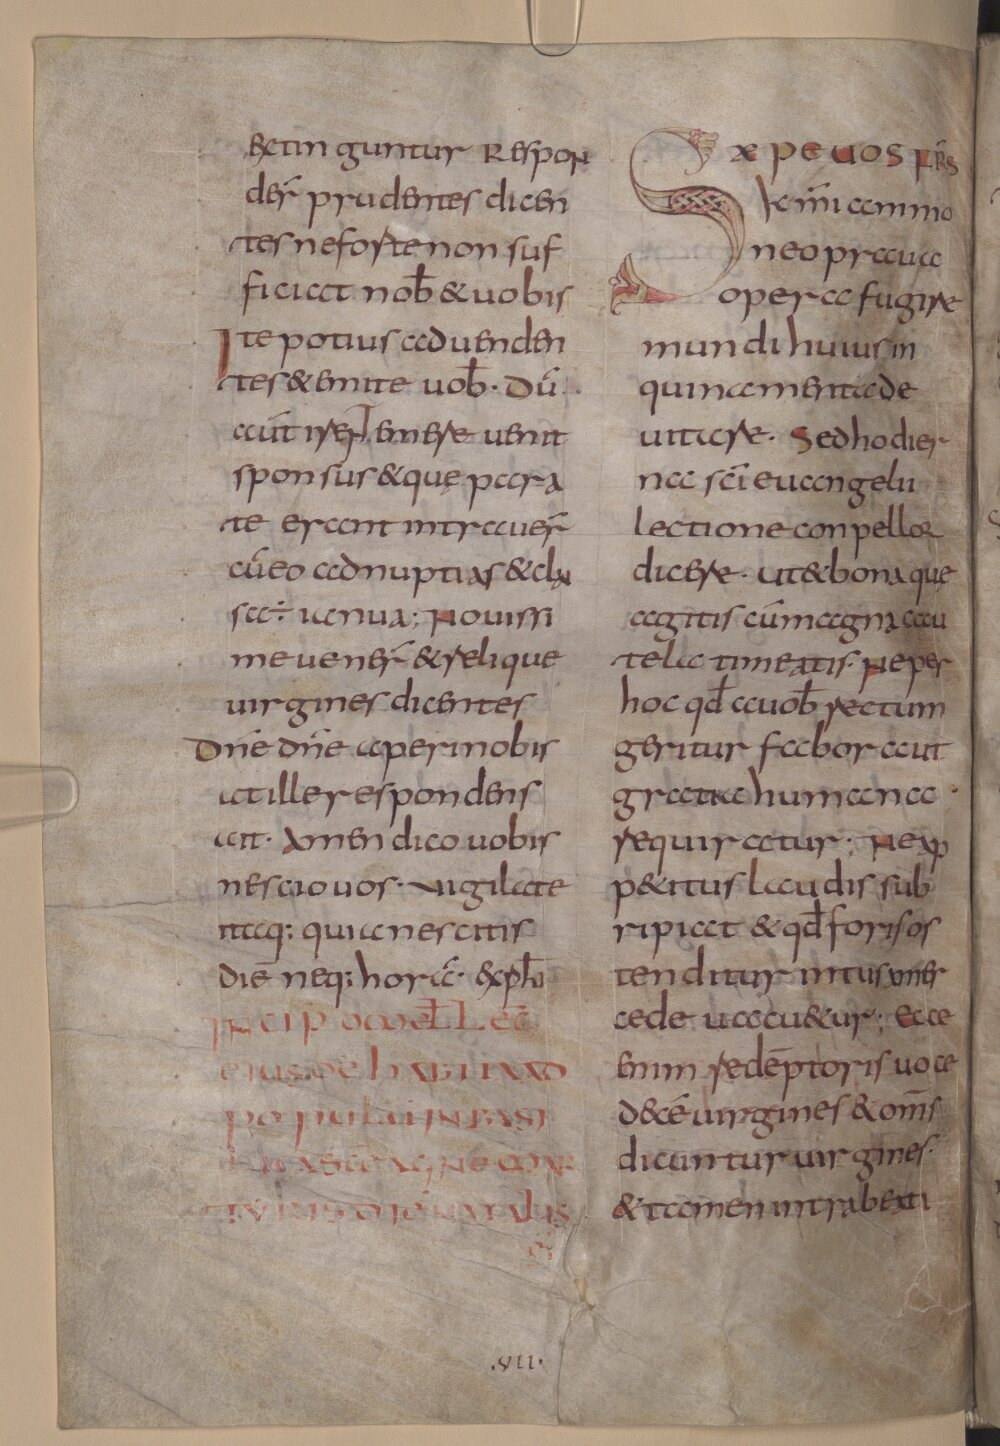 extinguntur Respon
der̄ prudentes dicen
tes ne forte non suf
ficiat nob̄ & uobis
Ite potius ad uenden
tes & emite uob̄. Dū
aūt irent emere uenit
sponsus & quę para
te erant intrauer̄
cū eo ad nuptias & clau
sa ÷ ianua; Nouissi
me uener̄ & relique
uirgines dicentes
Dn̄e dn̄e aperi nobis
at ille respondens
ait. Amen dico uobis
nescio uos. Uigilate
itaq: quia nescitis
diē neq; horā. explī
Incip omel Lec
eiusde habita ad
populū in basi
lica scae agne
natalis
ei
Sæpe uos fr̄s
k̄mi ammo
neo praua
opera fugere
mundi huius in
quinamenta de
uitare. Sed hodier
na sc̄i euangelii
lectione conpellor
dicere. ut & bona quę
agitis cū magna cau
tela timeatis. Ne per
hoc qd̄ a uob̄ rectum
geritur fabor aut
gratia humana
requiratur; Ne ap
p&itus laudis sub
ripiat & qd̄ foris os
tenditur intus a mer
cede uacu&ur; Ecce
enim redēptoris uoce
decē uirgines & om̄s
dicuntur uirgines.
& tamen intra beati
.VII.